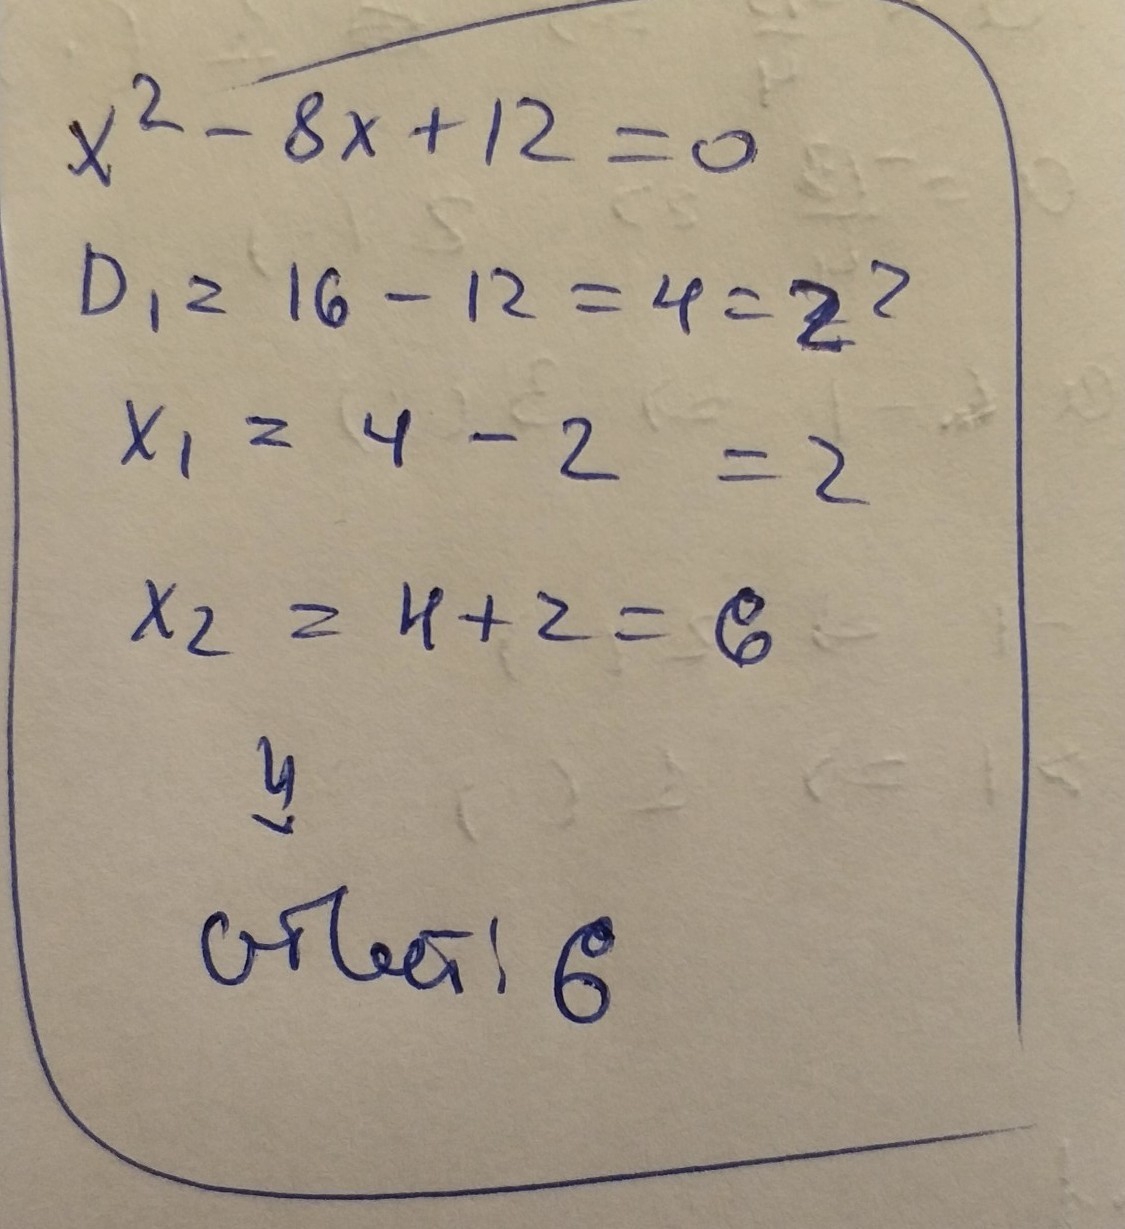 x² - 8x + 12 = 0
D₁ = 16 - 12 = 4 = 2²
x₁ = 4 - 2 = 2
x₂ = 4 + 2 = 6
ответ: 6